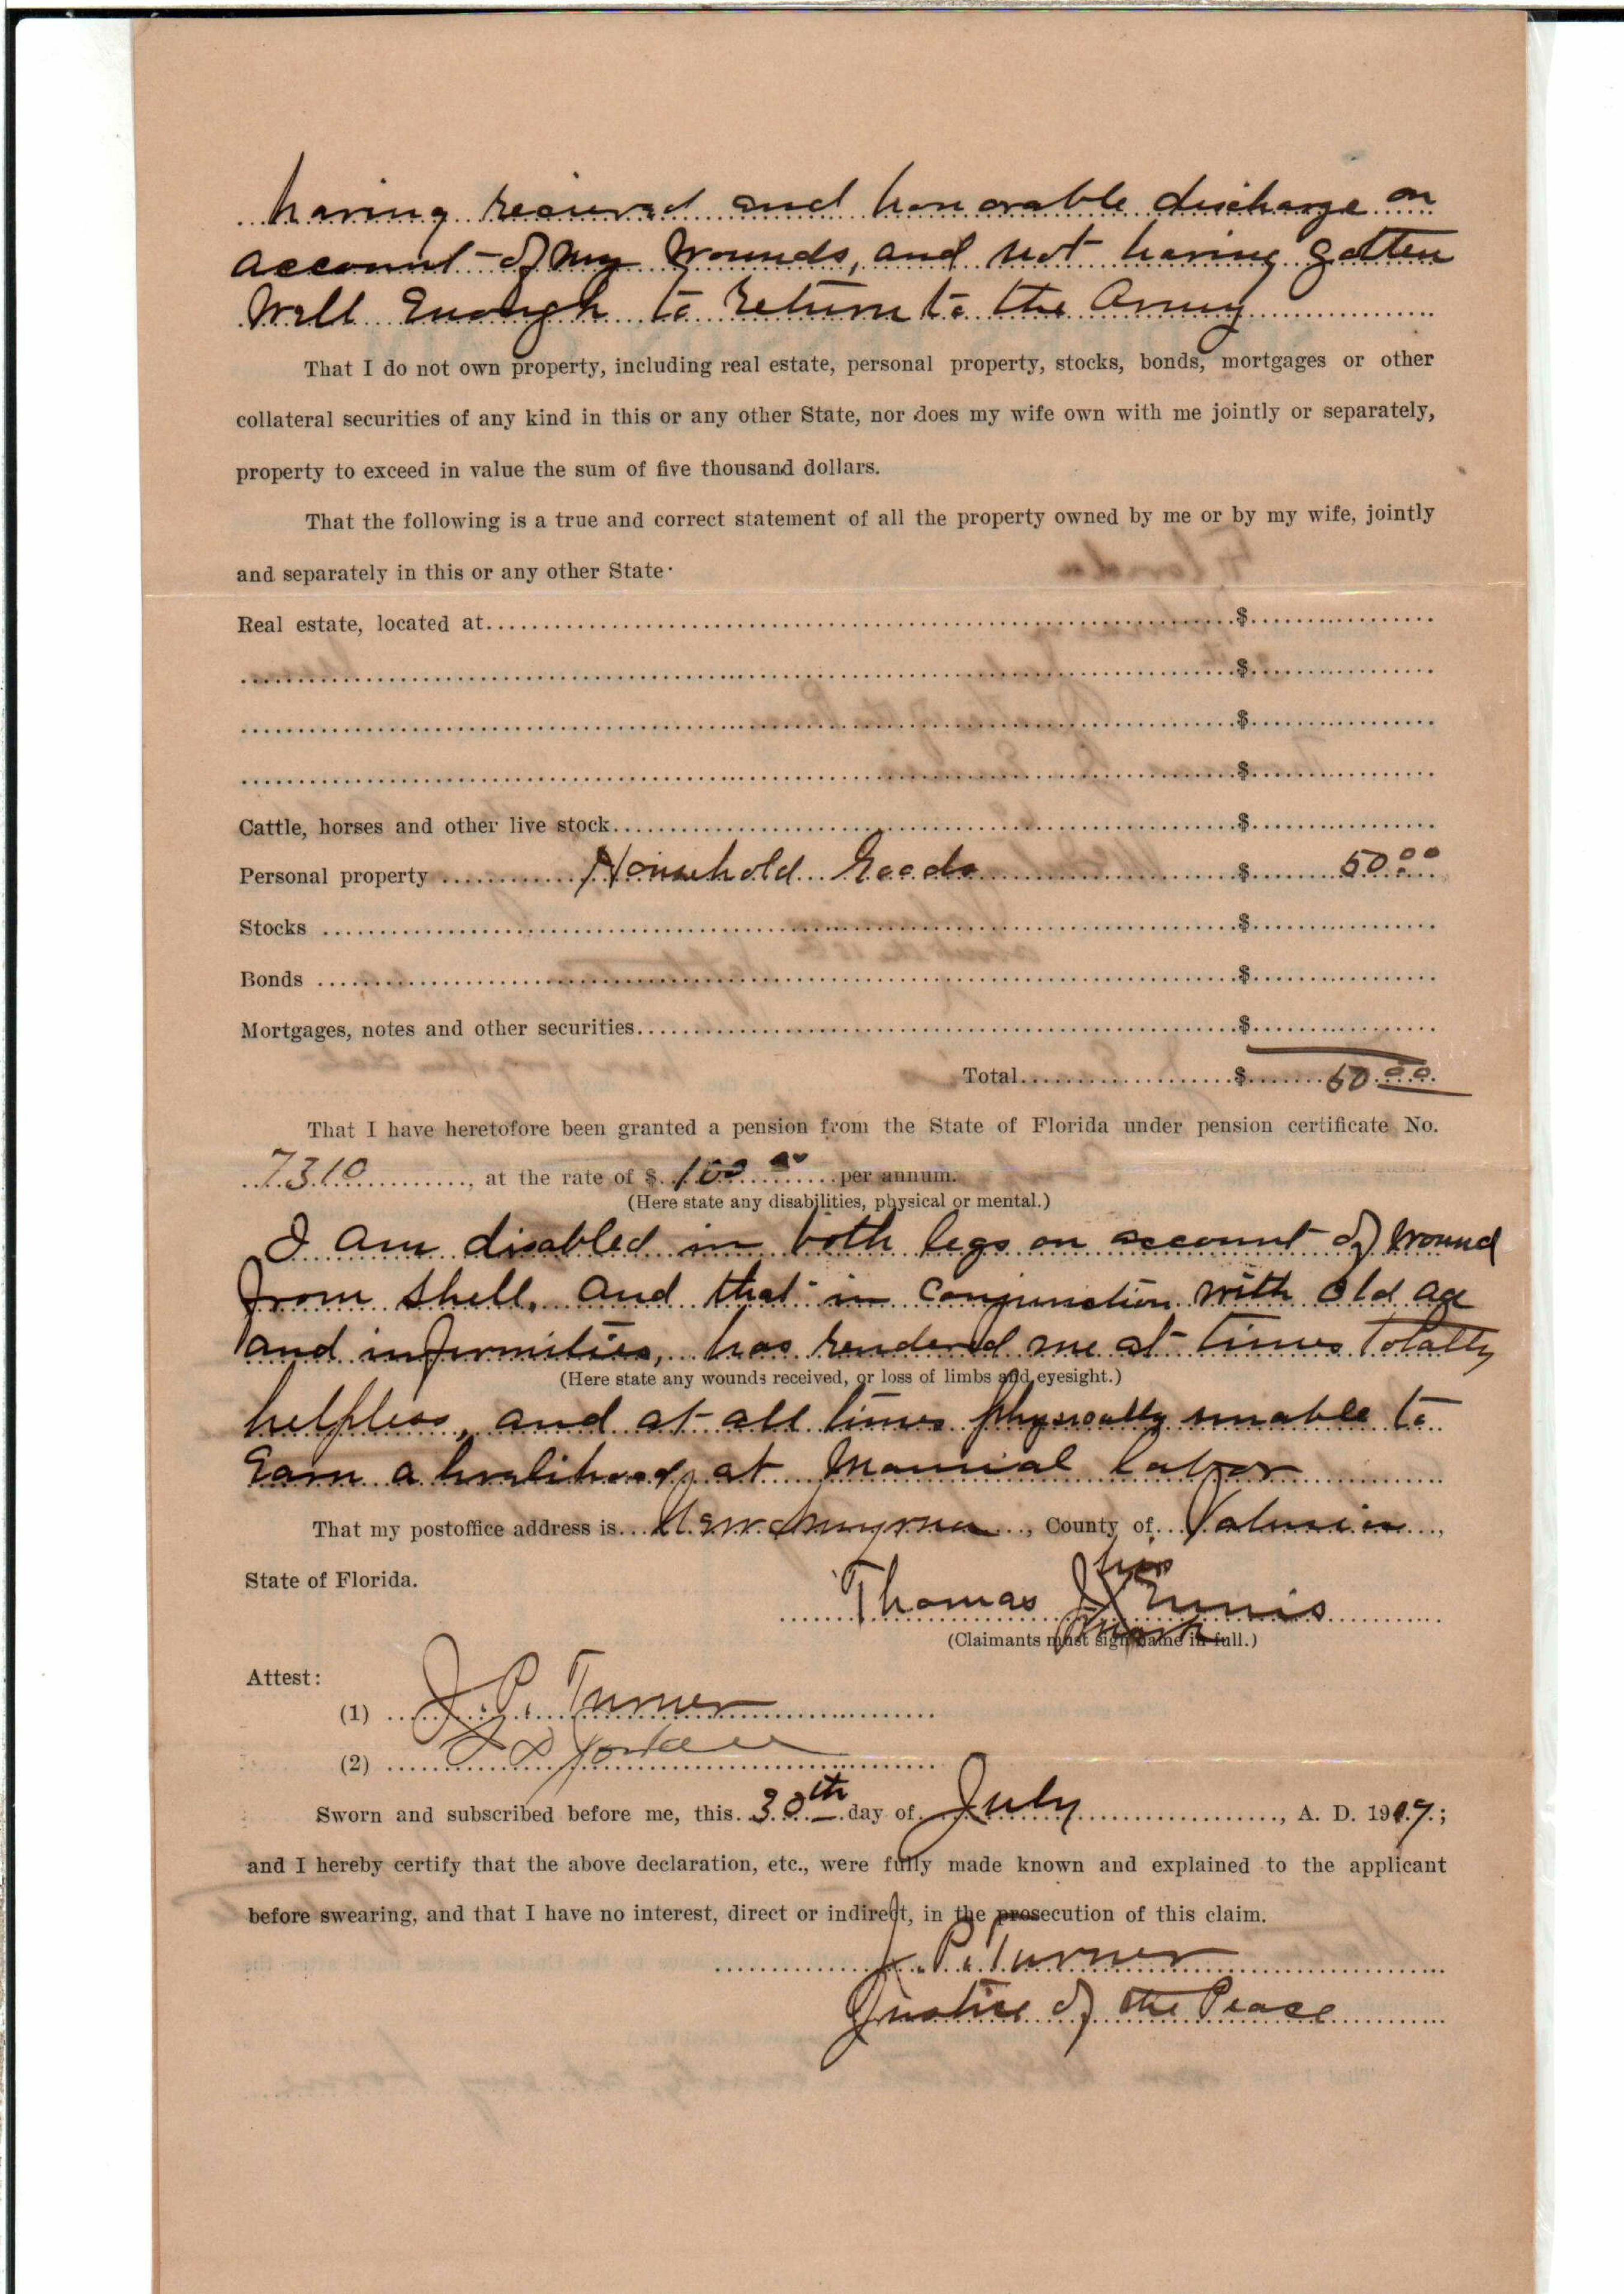 having recieved and honorable discharge on
account of my wounds, and not having gotten
well Enough to return to the Army
That I do not own property, including real estate, personal property, stocks, bonds, mortgages or other
collateral securities of any kind in this or any other State, nor does my wife own with me jointly or separately,
property to exceed in value the sum of five thousand dollars.
That the following is a true and correct statement of all the property owned by me or by my wife, jointly
and separately in this or any other State·
Real estate, located at $
$
$
$
Cattle, horses and other live stock $
Personal property Household Goods $ 50.00
Stocks $
Bonds $
Mortgages, notes and other securities $
Total $ 50.00
That I have heretofore been granted a pension from the State of Florida under pension certificate No.
7310, at the rate of $ 100 00 per annum.
(Here state any disabilities, physical or mental.)
I am disabled in both legs on account of wound
from shell, and that in conjunction with old age
and infirmities, has rendered me at times totally
(Here state any wounds received, or loss of limbs and eyesight.)
helpless, and at all times physically unable to
Earn a livelihood, at manual labor
That my postoffice address is New Smyrna, County of Volusia,
his
State of Florida. Thomas J X Ennis
mark
(Claimants must sign name in full.)
Attest:
(1) J. P. Turner
(2)
Sworn and subscribed before me, this 30th day of July, A. D. 1909.;
and I hereby certify that the above declaration, etc., were fully made known and explained to the applicant
before swearing, and that I have no interest, direct or indirect, in the prosecution of this claim.
J. P. Turner
Justice of the Peace